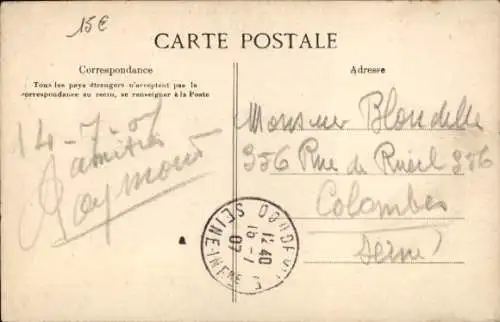 15€
CARTE POSTALE
Correspondance
Adresse
Tous les pays étrangers n'acceptent pas la
correspondance au recto, se renseigner à la Poste
14-7-07
amitiés
Raymond
Monsieur Blondelle
356 Rue de Rueil 356
Colombes
Seine)
12 40
16 - 7
07
SEINE-INFRE